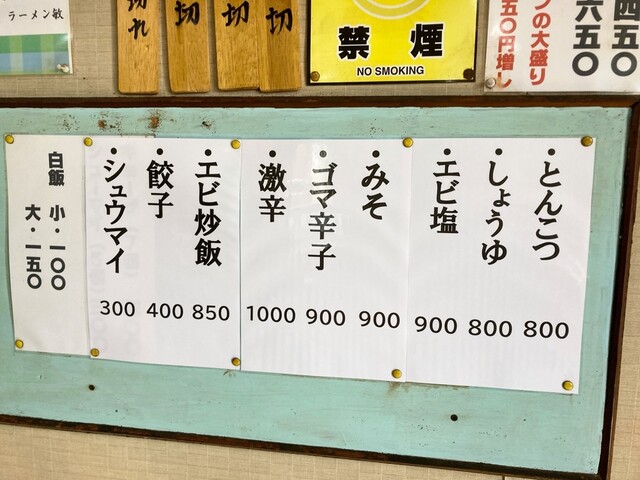 ラーメン敏
切れ
切
切
切
禁煙
NO SMOKING
四五〇
六五〇
つの大盛り
五〇円増し
・とんこつ 800
・しょうゆ 800
・エビ塩 900
・みそ 900
・ゴマ辛子 900
・激辛 1000
・エビ炒飯 850
・餃子 400
・シュウマイ 300
白飯 小・一〇〇
大・一五〇